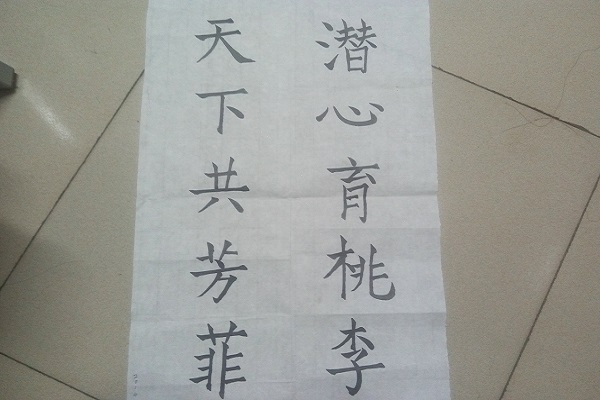 潜心育桃李
天下共芳菲